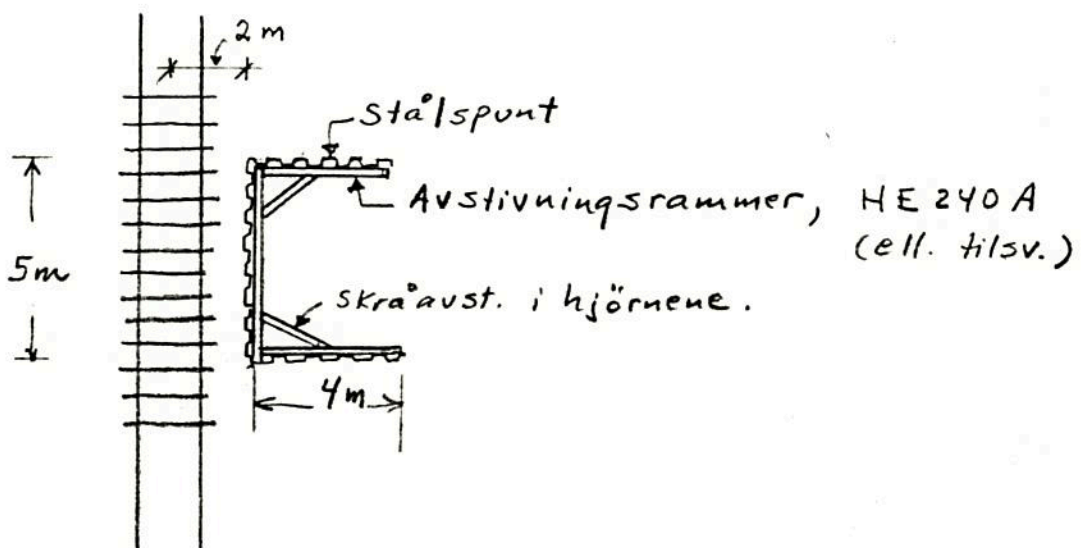 2 m
Stålspunt
Avstivningsrammer, HE 240 A
(ell. tilsv.)
5m
skråavst. i hjörnene.
4m